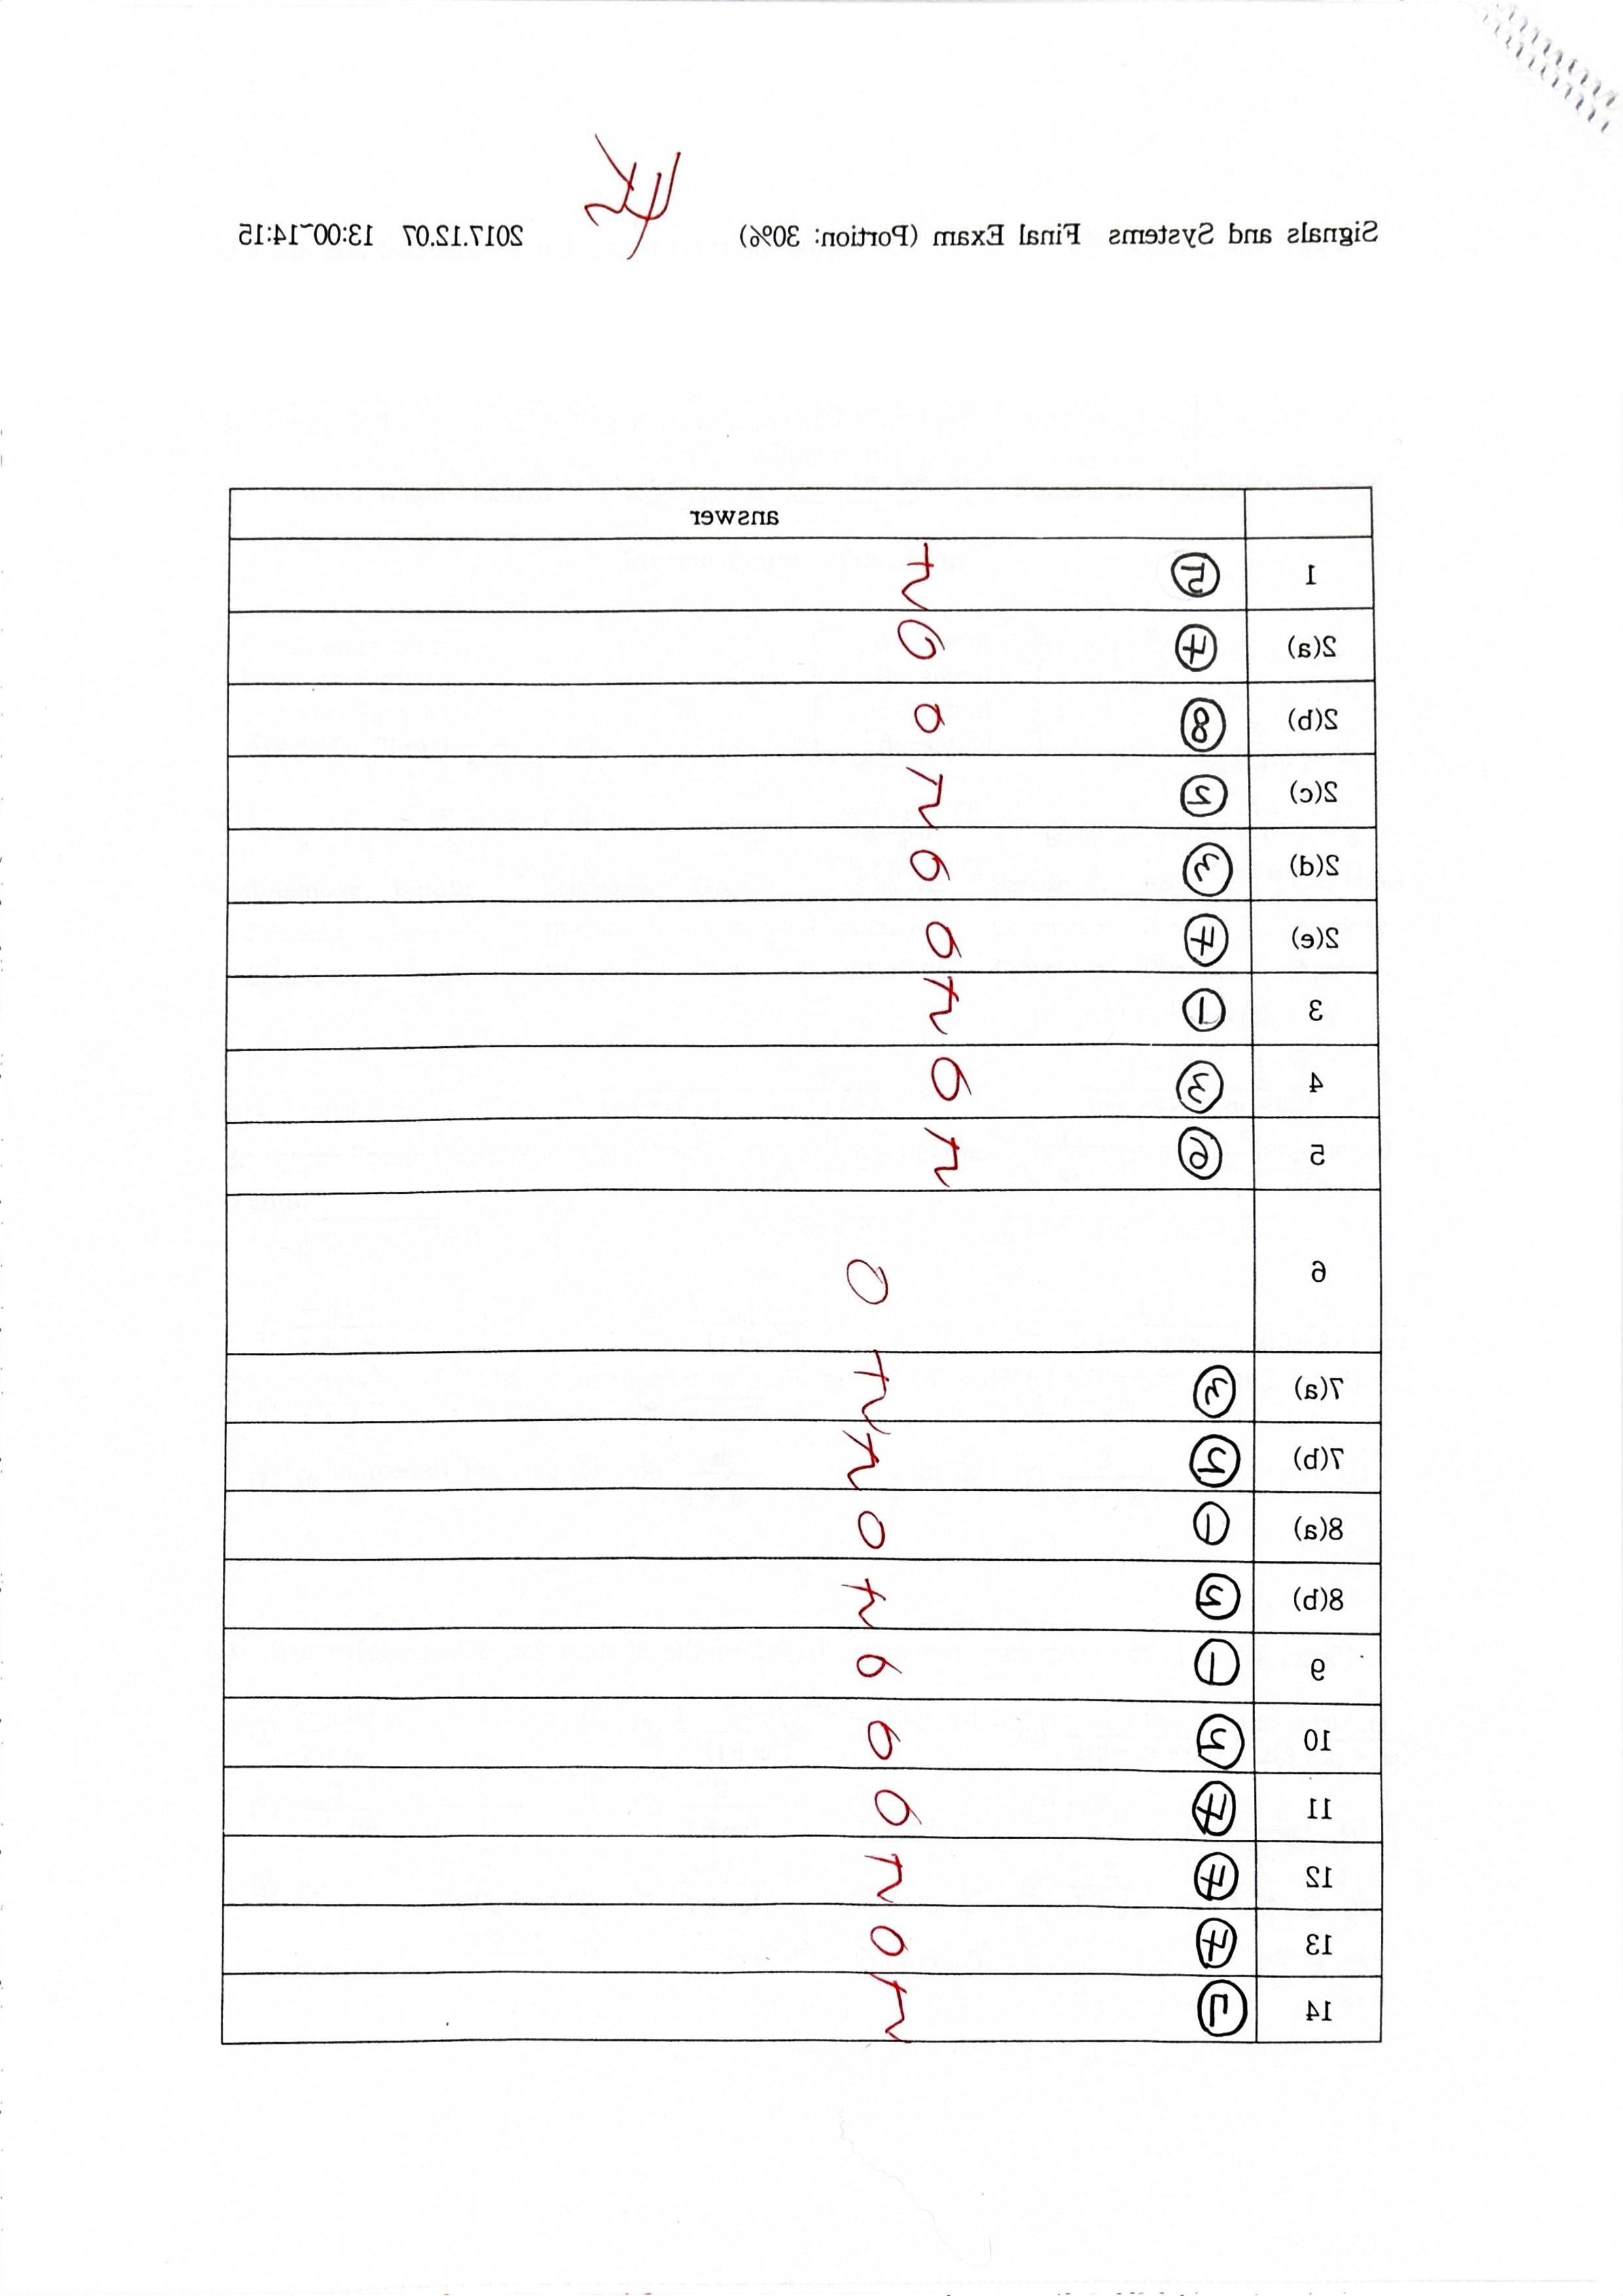 Signals and Systems Final Exam (Portion: 30%) 2017.12.07 13:00~14:15
answer
1 ⑤
2(a) ④
2(b) ⑧
2(c) ②
2(d) ③
2(e) ④
3 ①
4 ③
5 ⑥
6 0
7(a) ③
7(b)
8(a) ①
8(b)
9 ①
10
11 ④
12 ④
13 ④
14 ⑦